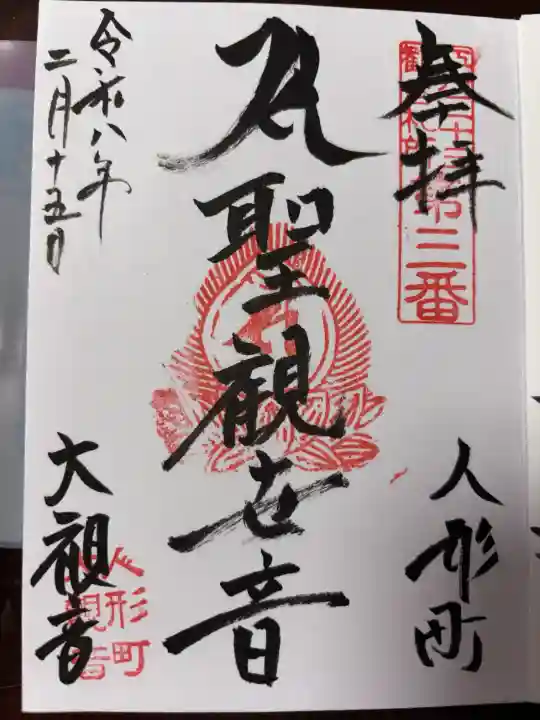 奉拝
三番
人形町
聖観世音
令和八年
二月十五日
大観音
人形町
大観音